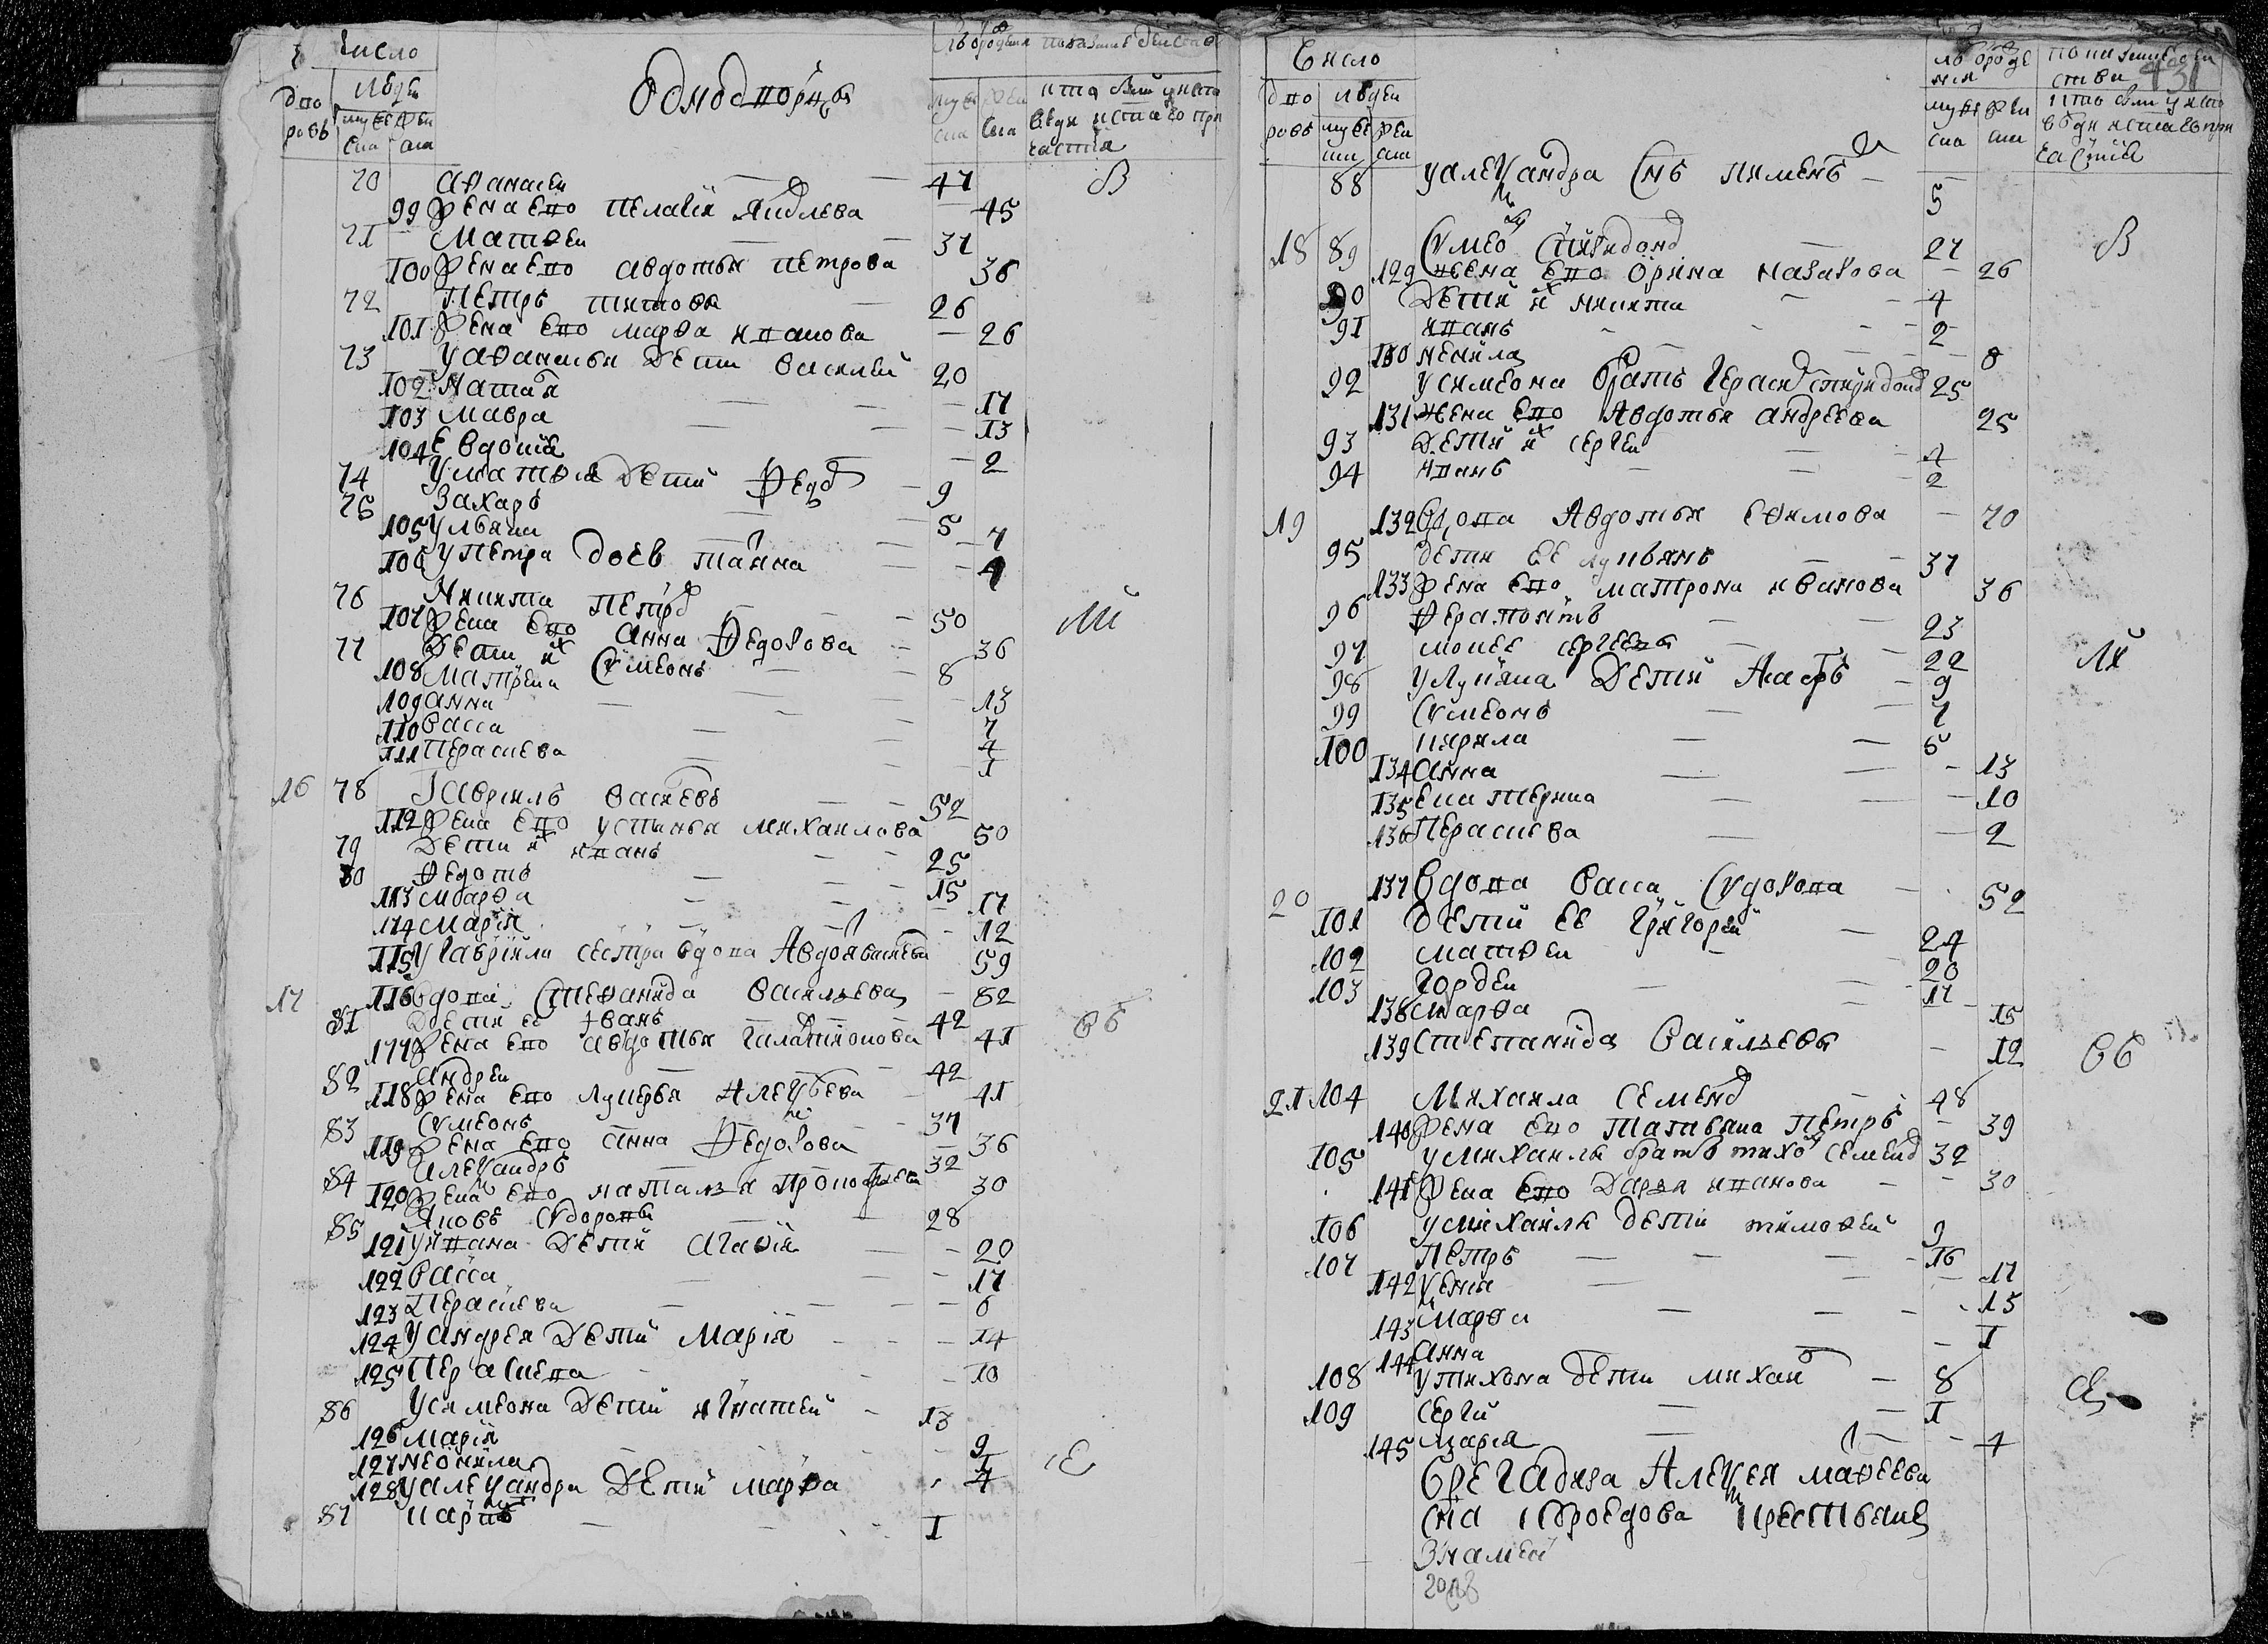 Число
дво
ровъ
людей
муже
ска
жен
ска
Однодворцы
муже
ска
жен
ска
70 Афанасеи 47 В
99 жена ево Пелагия Яковлева 45
71 Матвеи 37
100 жена ево Авдотья Петрова 36
72 Петръ Титовъ 26
101 жена ево Марфа Иванова 26
73 У Афанасья дети Василей 20
102 Наталя 17
103 Мавра 13
104 Евдокия 2
74 У Матвея дети Федор 9
75 Захаръ 5
105 Ульяна 7
106 У Петра дочь Татиана 4
76 Никита Петров 50
107 жена ево Анна Федорова 36
77 Дети их Сѵмеонъ 8
108 Матрена 13
109 Анна 7
110 Васса 4
111 Перасковя 1
16 78 Гавриилъ Васильевъ 52
112 жена ево Устинья Михаилова 50
79 Дети их Иванъ 25
80 Федотъ 15
113 Марфа 17
114 Мария 12
115 У Гавриила сестра вдова Авдотя Васильева 59
17 116 Вдова Стефанида Васильева 82
81 Дети ее Иванъ 42
117 жена ево Авдотья Галактионова 41
82 Андреи 42
118 жена ево Лукерья Алеѯѣева 41
83 Сѵмеонъ 37
119 жена ево Анна Федорова 36
84 Алеѯандръ 32
120 жена ево Наталья Прокофьева 30
85 Яковъ Сидоровъ 28
121 У Ивана дети Агафия 20
122 Васса 17
123 Перасковя 6
124 У Андрея дети Мария 14
125 Перасковя 10
86 У Симеона дети Игнатей 13
126 Мария 9
127 Неонила 1
128 У Алеѯандра дети Марфа 4
87 Карпъ 1
Число
дво
ровъ
людей
муже
ска
жен
ска
431
муже
ска
жен
ска
88 У Алеѯандра снъ Пименъ 5
18 89 Сѵмео Спиридонов 27 В
129 жена ево Орина Назарова 26
90 Дети их Никита 4
91 Иванъ 2
130 Ненила 8
92 У Симеона братъ Герасим Спиридонов 25
131 жена ево Авдотья Андреева 25
93 Дети их Сергеи
94 Иванъ 2
19 132 Вдова Авдотья Ефимова 70
95 Дети ее Лукьянъ 37
133 жена ево Матрона Иванова 36
96 Ферапонтъ 23
97 Моисе Сергеевъ 22
98 У Лукиана дети Лавръ 9
99 Сѵмеонъ 7
100 Кирила 5
134 Анна 13
135 Екатерина 10
136 Перасковя 2
20 137 Вдова Васса Сидорова 52
101 Дети ее Григорей 24
102 Матвеи 20
103 Гордеи 17
138 Марфа 15
139 Степанида Васильева 12
21 104 Михаила Семенов 48
140 жена ево Татьяна Петров 39
105 У Михаилы братъ Тихон Семенов 32
141 жена ево Дарья Иванова 30
106 У Михаила дети Тимофей 9
107 Петръ 16
142 Ѯения 17
143 Марфа 15
144 Анна 1
108 У Тихона дети Михаил 8
109 Сергий 1
145 Мария 4
Брегадира Алеѯея Мафеева
сна крестьяне